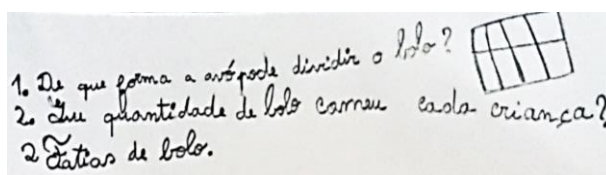 1. De que forma a avó pode dividir o bolo?
2. Que quantidade de bolo comeu cada criança?
2 Fatias de bolo.